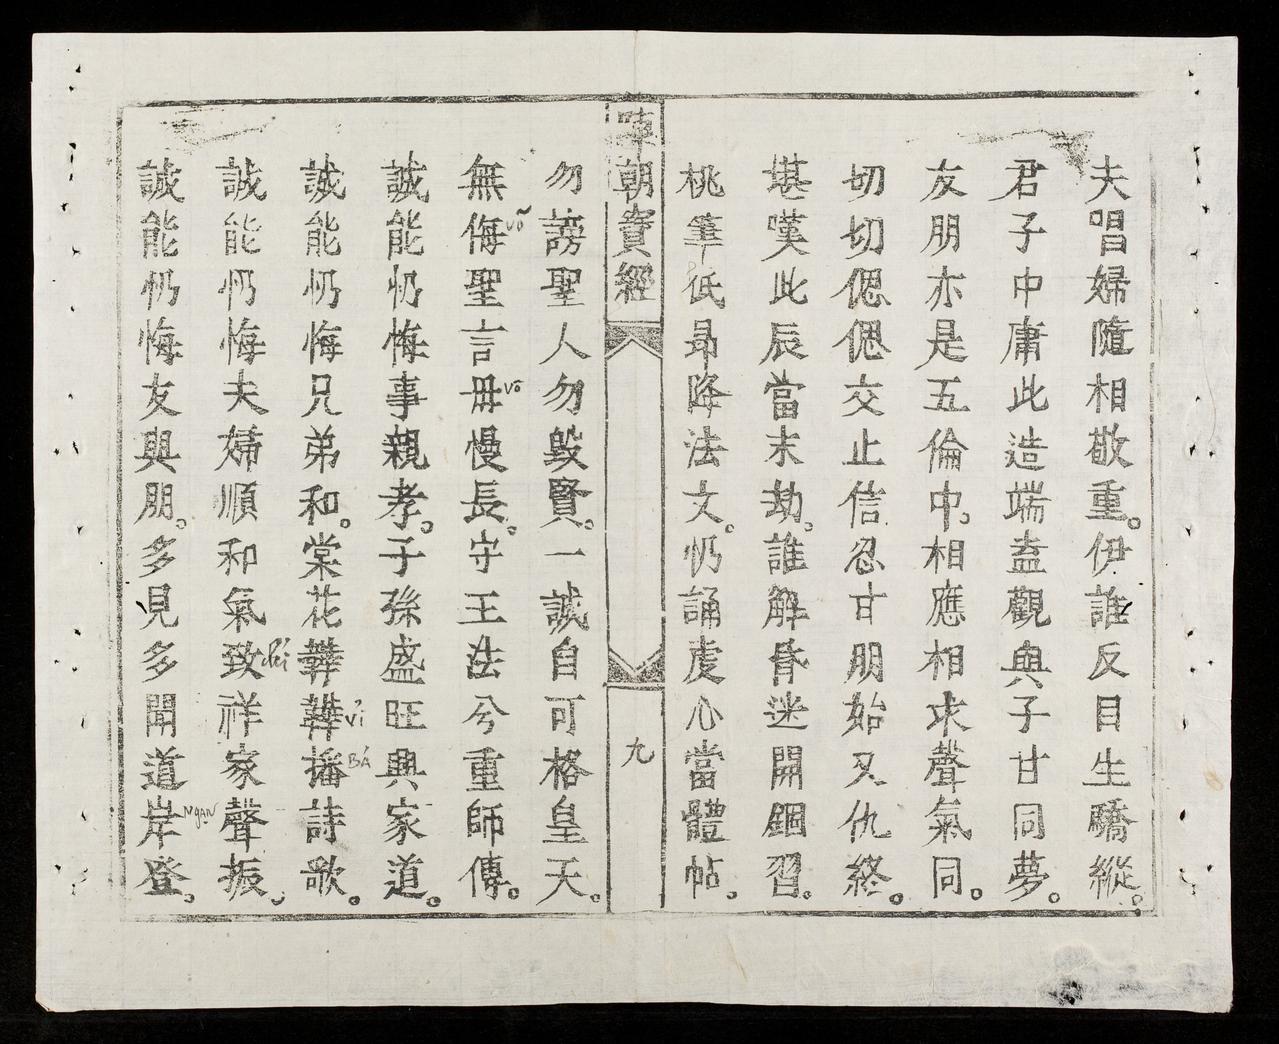 夫唱婦隨相敬重。伊誰反目生驕縱。
君子中庸此造端盍觀與子甘同夢。
友朋亦是五倫中。相應相求聲氣同。
切切偲偲交止信忍甘朋始又仇終。
堪嘆此辰當末劫。誰解昏迷開錮習。
桃筆低昻降法文。忉誦虔心當體帖。
朝寶經
九
勿謗聖人勿毀賢。一誠自可格皇天。
無侮聖言毋慢長。守王法兮重師傳。
võ
vô
誠能忉悔事親孝。子孫盛旺興家道。
誠能忉悔兄弟和。棠花韡韡播詩歌。
vĩ
BÁ
誠能忉悔夫婦順和氣致祥家聲振。
chí
誠能忉悔友與朋。多見多聞道岸登。
NgạN